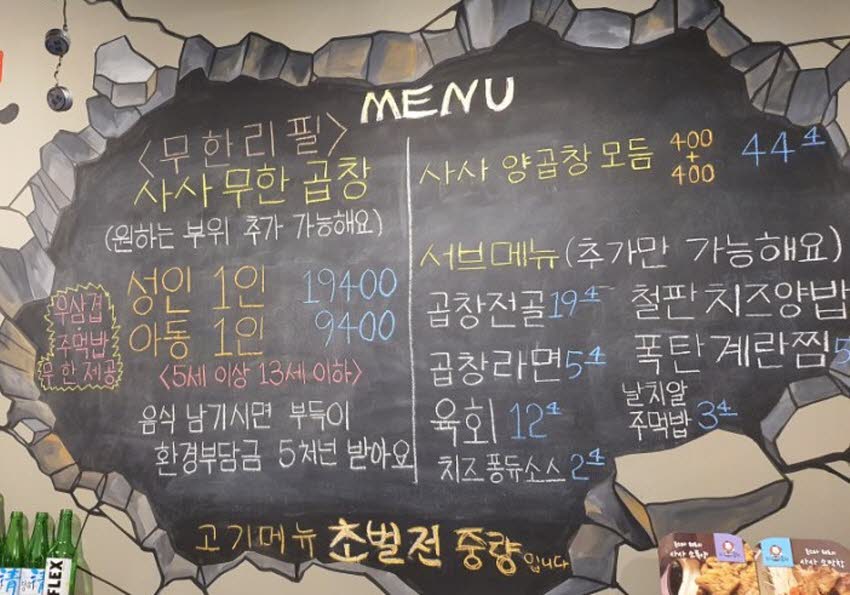 MENU
<무한리필>
사사 무한 곱창
(원하는 부위 추가 가능해요)
성인 1인 19400
아동 1인 9400
<5세 이상 13세 이하>
우삼겹
주먹밥
무한제공
음식 남기시면 부득이
환경부담금 5처넌 받아요
사사 양곱창 모듬 400+400 44
서브메뉴(추가만 가능해요)
곱창전골 19
철판치즈양밥
곱창라면 5
폭탄계란찜 5
육회 12
날치알
주먹밥 3
치즈퐁듀소스 2
고기메뉴 초벌전 중량입니다
清
清
FLEX